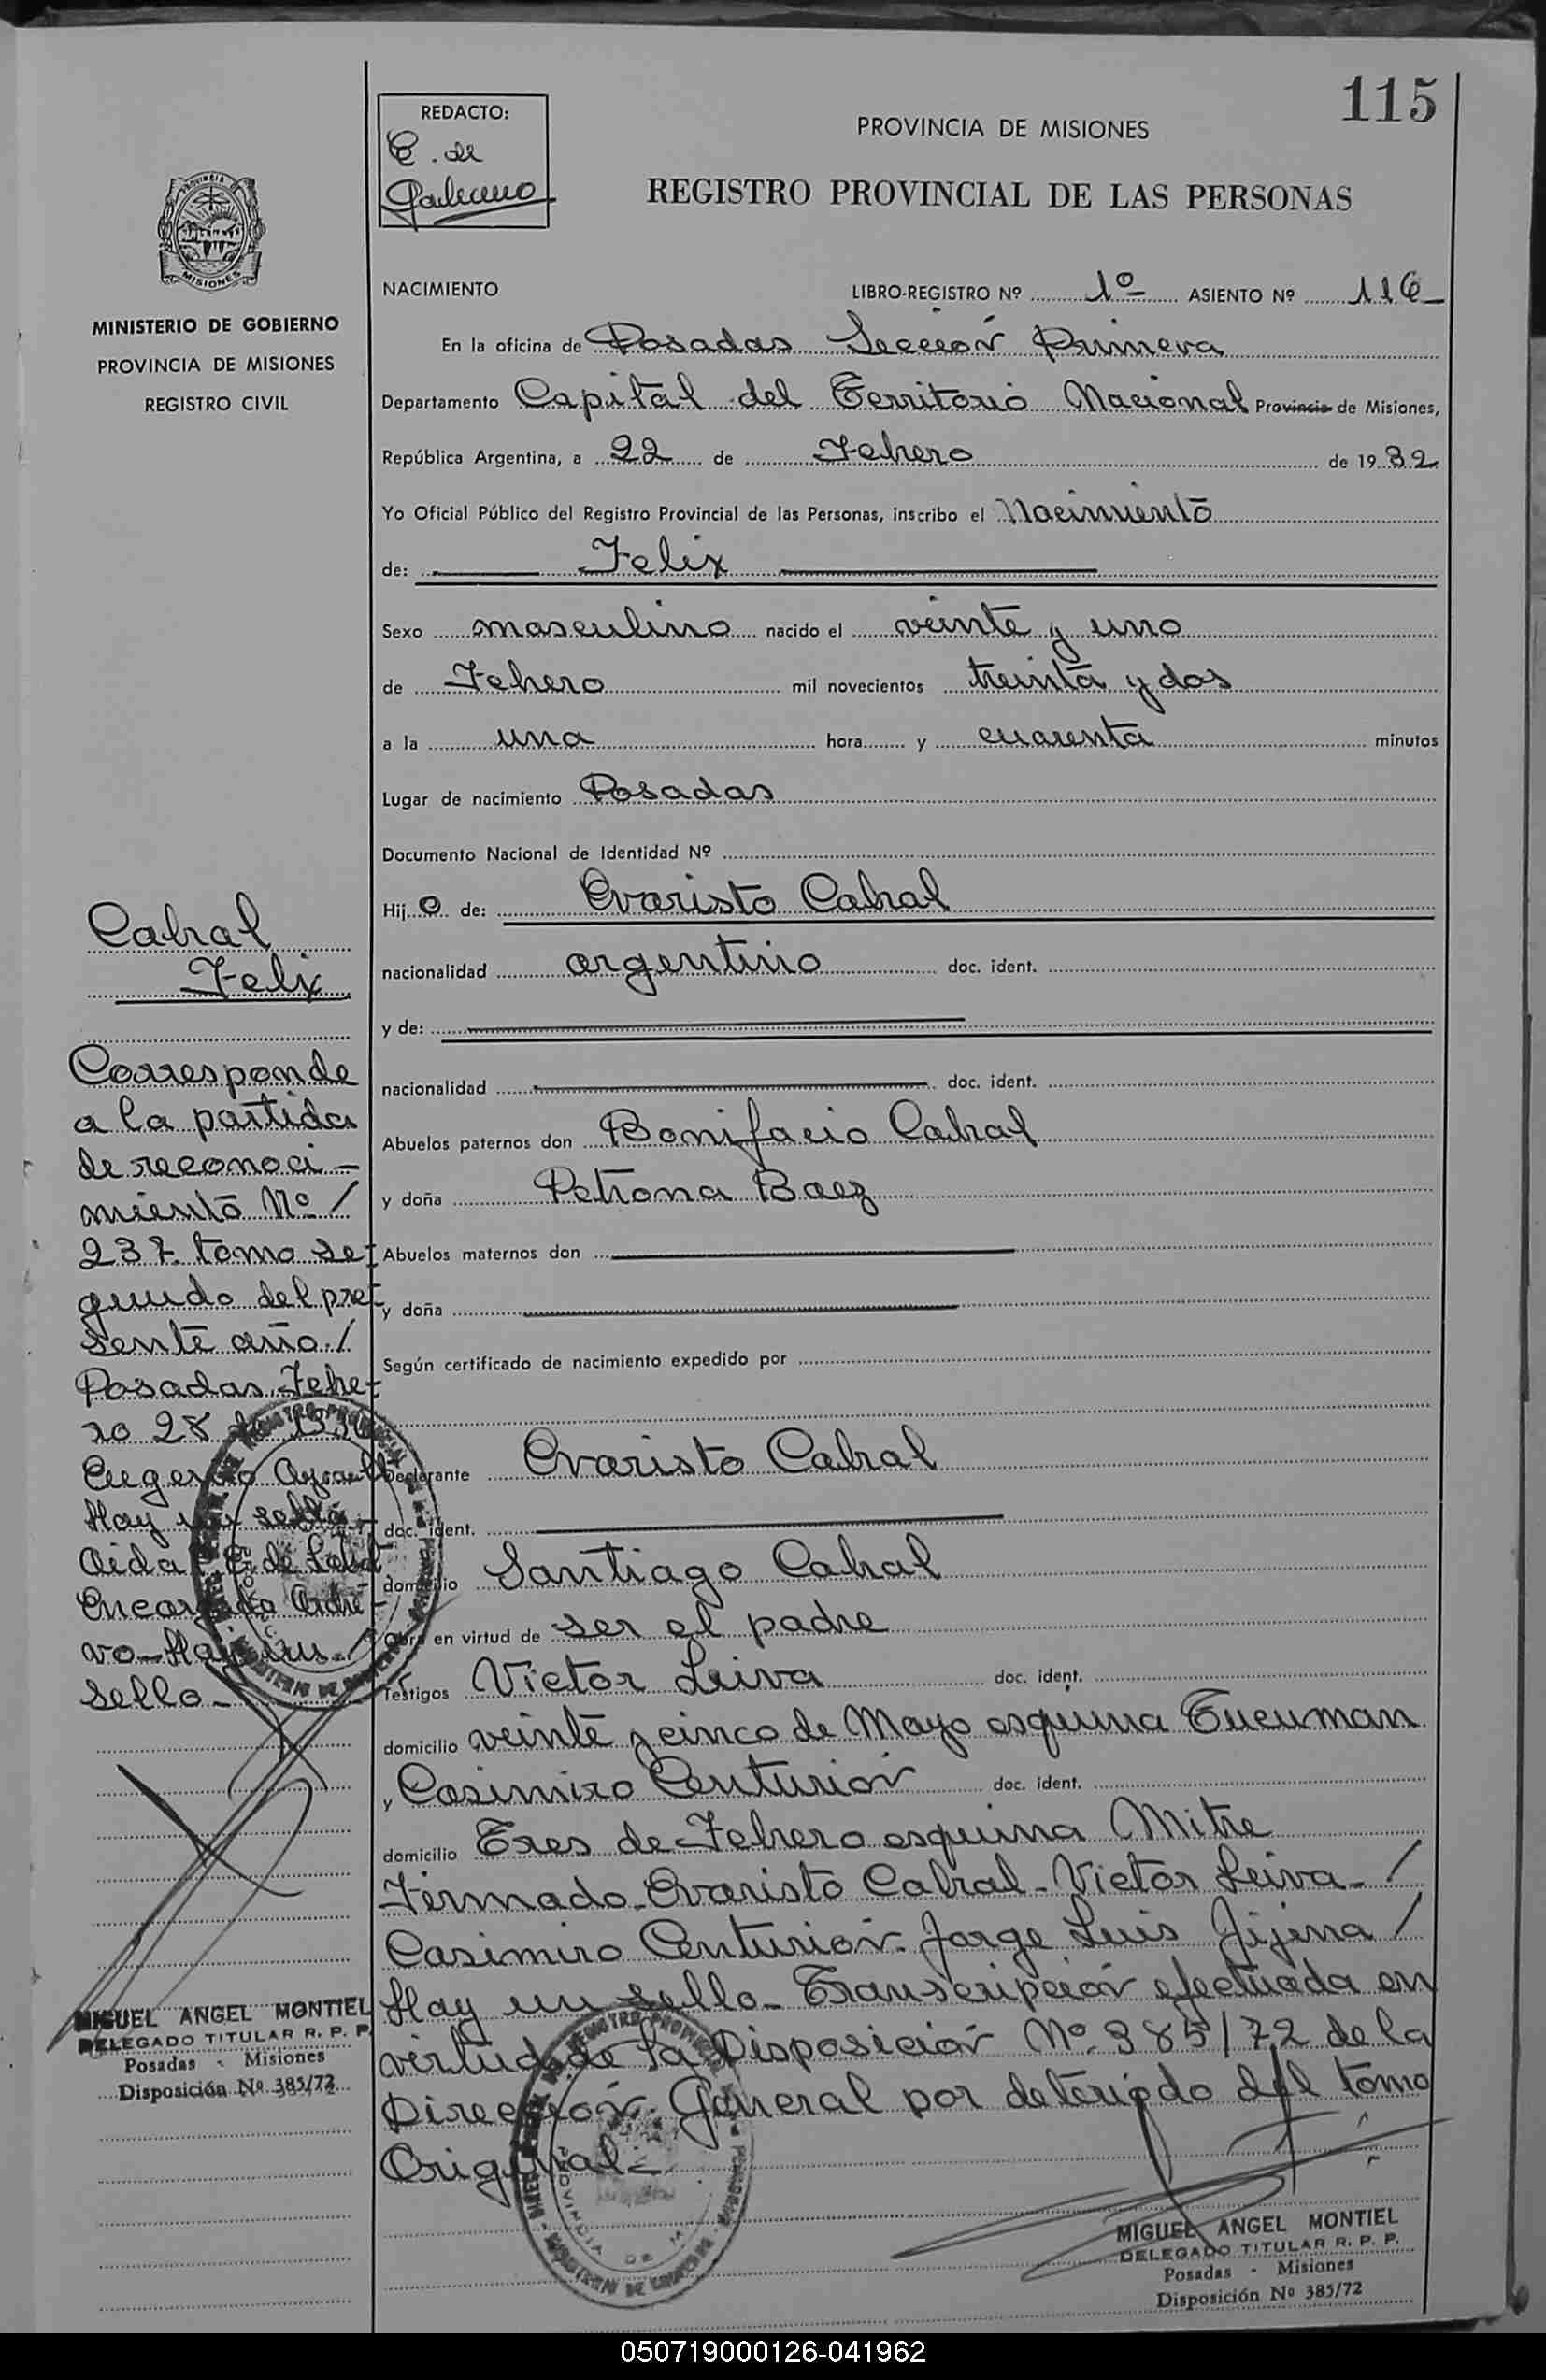 115
REDACTO:
E. de
Galeano
PROVINCIA DE MISIONES
REGISTRO PROVINCIAL DE LAS PERSONAS
PROVINCIA
MISIONES
MINISTERIO DE GOBIERNO
PROVINCIA DE MISIONES
REGISTRO CIVIL
NACIMIENTO LIBRO-REGISTRO Nº 1º ASIENTO Nº 116
En la oficina de Posadas Sección Primera
Departamento Capital del Territorio Nacional Provincia de Misiones,
República Argentina, a 22 de Febrero de 1932
Yo Oficial Público del Registro Provincial de las Personas, inscribo el Nacimiento
de: Felix
Sexo masculino nacido el veinte y uno
de Febrero mil novecientos treinta y dos
a la una hora y cuarenta minutos
Lugar de nacimiento Posadas
Documento Nacional de Identidad Nº
Hij o de: Evaristo Cabral
nacionalidad argentino doc. ident.
y de:
nacionalidad doc. ident.
Abuelos paternos don Bonifacio Cabral
y doña Petrona Baez
Abuelos maternos don
y doña
Según certificado de nacimiento expedido por
Declarante Evaristo Cabral
doc. ident.
domicilio Santiago Cabral
Obra en virtud de ser el padre
Testigos Victor Leiva doc. ident.
domicilio veinte y cinco de Mayo esquina Tucuman
y Casimiro Centurión doc. ident.
domicilio Tres de Febrero esquina Mitre
Firmado-Evaristo Cabral-Victor Leiva-/
Casimiro Centurión-Jorge Luis Jijena/
Hay un sello-Transcripción efectuada en
virtud de la Disposición Nº 385/72 de la
Dirección General por deteriodo del tomo
Original-
MIGUEL ANGEL MONTIEL
DELEGADO TITULAR R. P. P.
Posadas - Misiones
Disposición Nº 385/72
Cabral
Felix
Corresponde
a la partida
de reconoci-
miento Nº/
237 tomo se-
gundo del pre-
sente año/
Posadas, Febre-
ro 28 de
Eugenio
Hay un sello-
Aida E. de
Encargada Archi-
vo-Hay un-/
Sello-
MIGUEL ANGEL MONTIEL
DELEGADO TITULAR R. P. P.
Posadas - Misiones
Disposición Nº 385/72
050719000126-041962